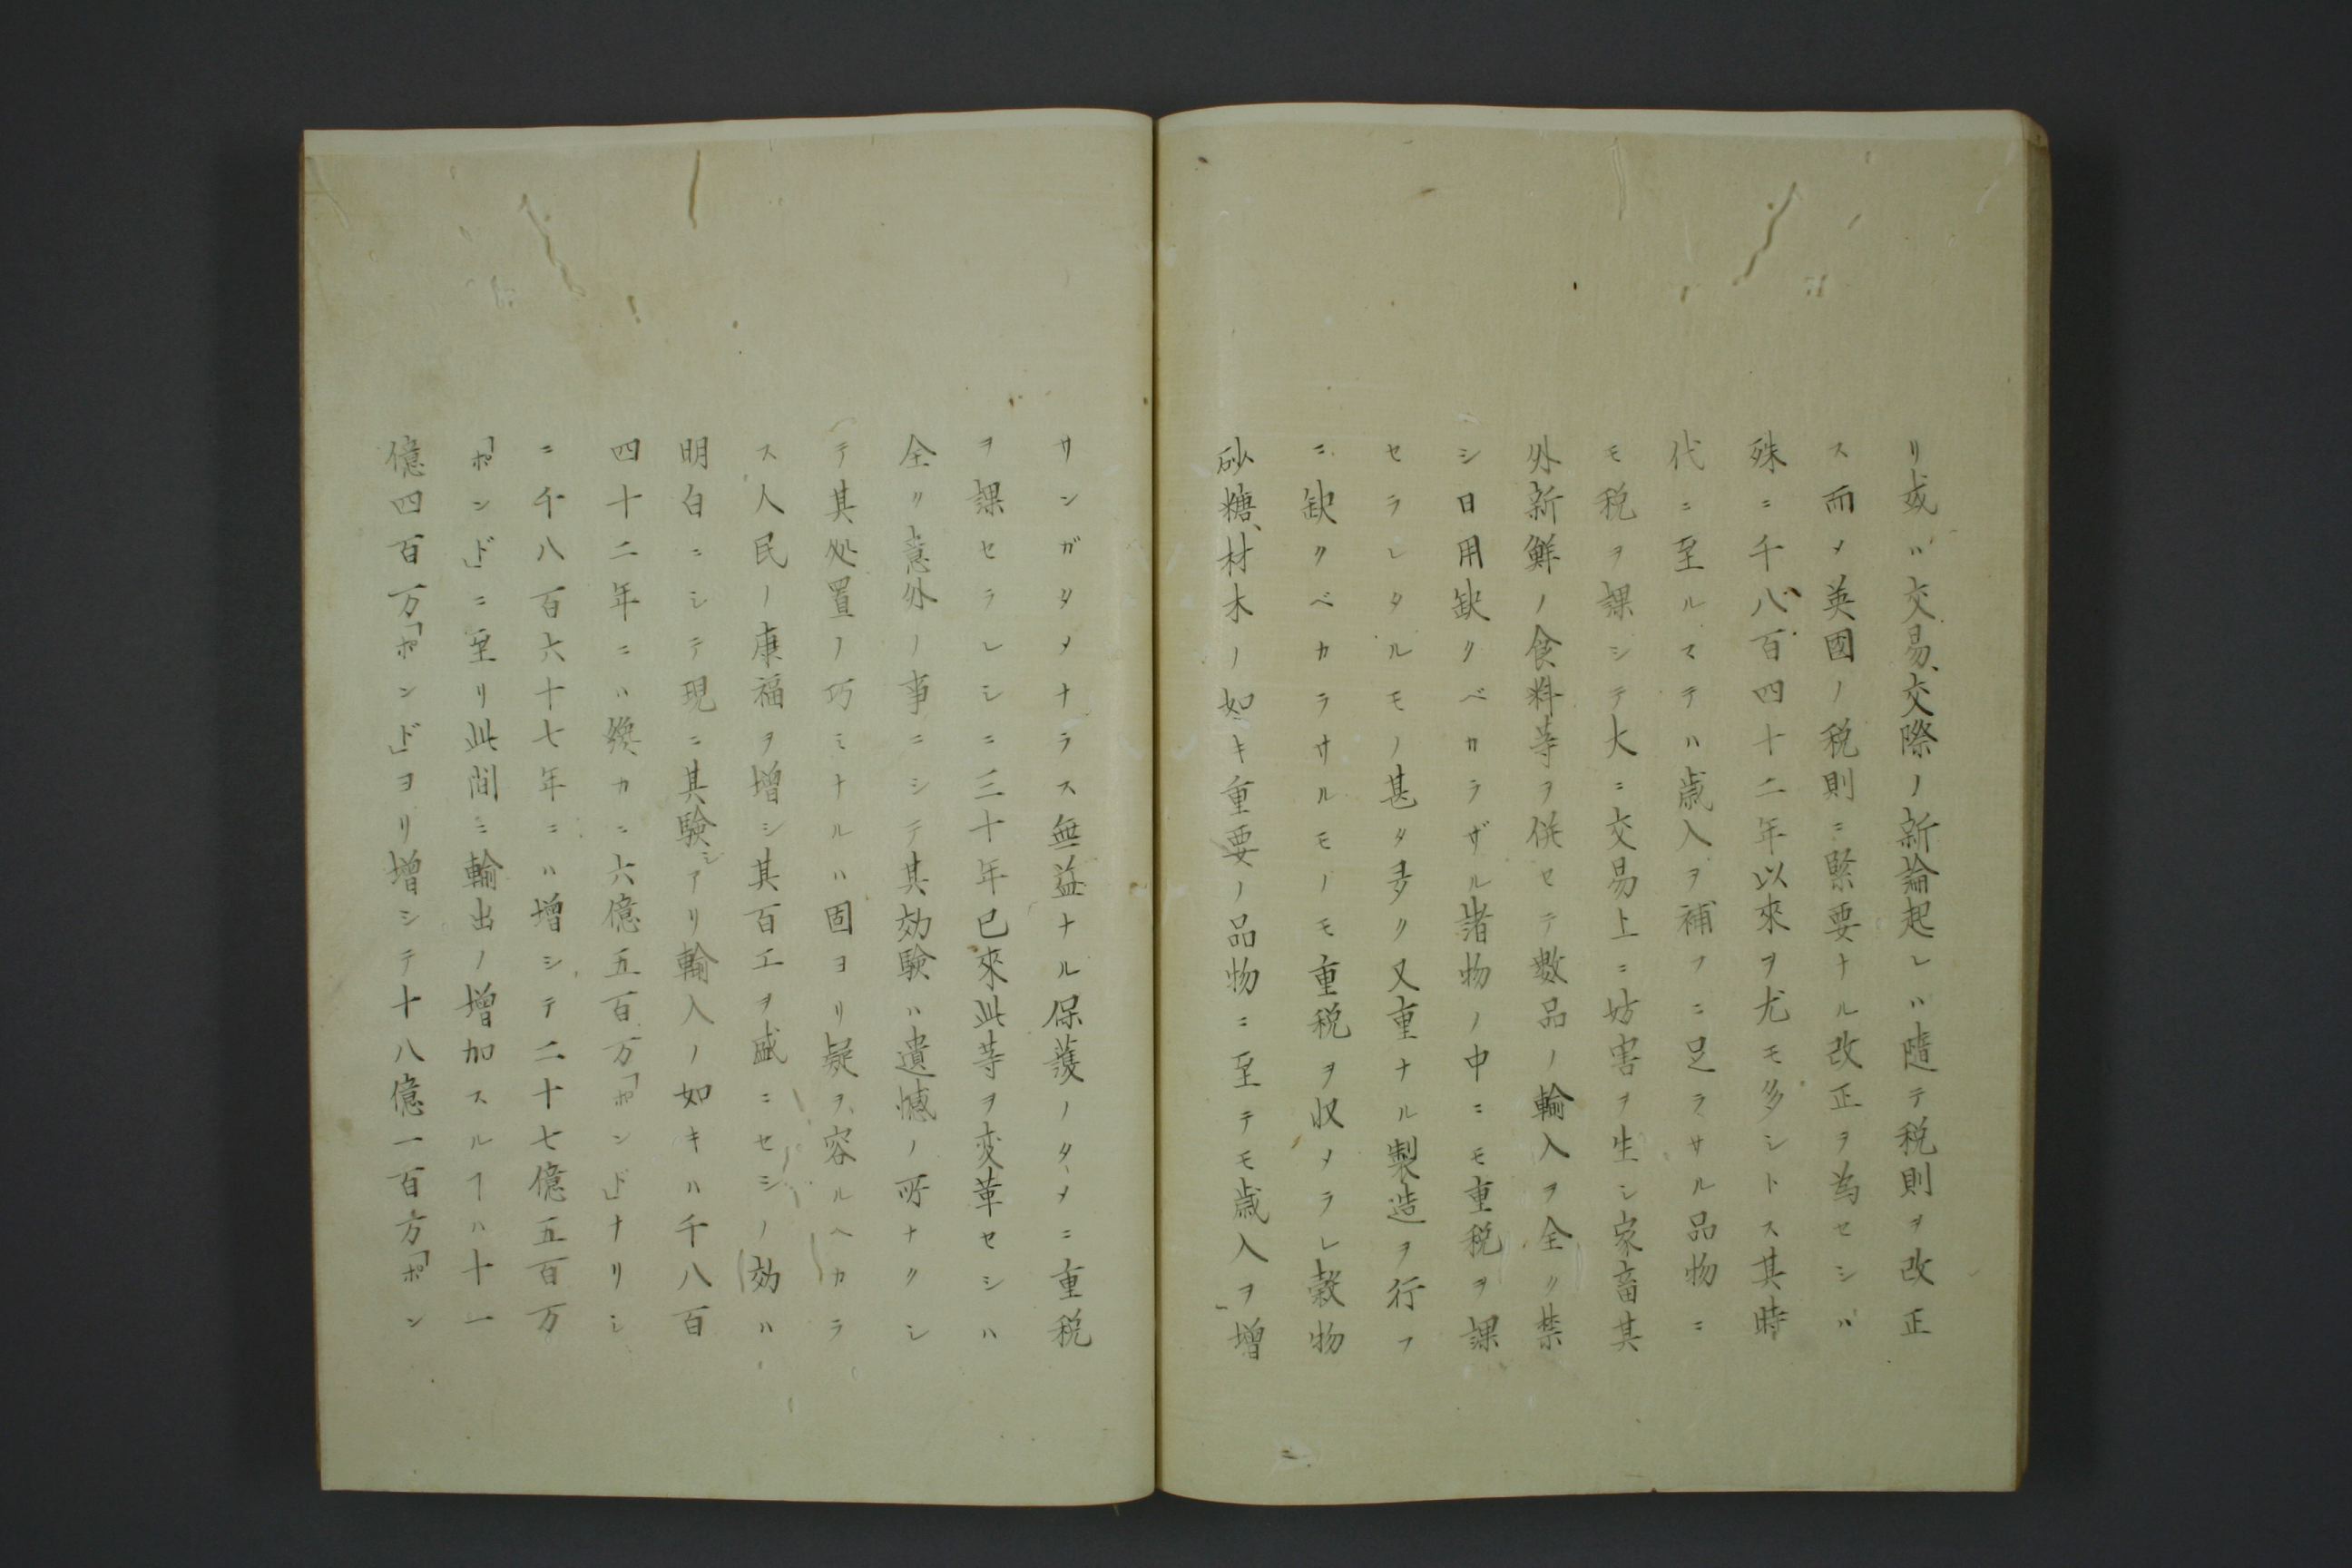 リ或ハ交易、交際ノ新論起レハ隨テ税則ヲ改正
ス而メ英國ノ税則ニ緊要ナル改正ヲ為セシハ
殊ニ千八百四十二年以來ヲ尤モ多シトス其時
代ニ至ルマテハ歳入ヲ補フニ足ラサル品物ニ
モ税ヲ課シテ大ニ交易上ニ妨害ヲ生シ家畜其
外新鮮ノ食料等ヲ併セテ數品ノ輸入ヲ全ク禁
シ日用缺クベカラザル諸物ノ中ニモ重税ヲ課
セラレタルモノ甚タ多ク又重ナル製造ヲ行フ
ニ缺クベカラサルモノモ重税ヲ収メラレ穀物
砂糖、材木ノ如キ重要ノ品物ニ至テモ歳入ヲ増
サンガタメナラス無益ナル保護ノタメニ重税
ヲ課セラレシニ三十年已來此等ヲ変革セシハ
全ク意外ノ事ニシテ其効驗ハ遺憾ノ所ナクシ
テ其処置ノ巧ミナルハ固ヨリ疑ヲ容ルヘカラ
ス人民ノ康福ヲ增シ其百工ヲ盛ニセシノ効ハ
明白ニシテ現ニ其驗シアリ輸入ノ如キハ千八百
四十二年ニハ纔カニ六億五百万「ポンド」ナリシ
ニ千八百六十七年ニハ增シテ二十七億五百万
「ポンド」ニ至リ此間ニ輸出ノ增加スルヿハ十一
億四百万「ポンド」ヨリ增シテ十八億一百万「ポン